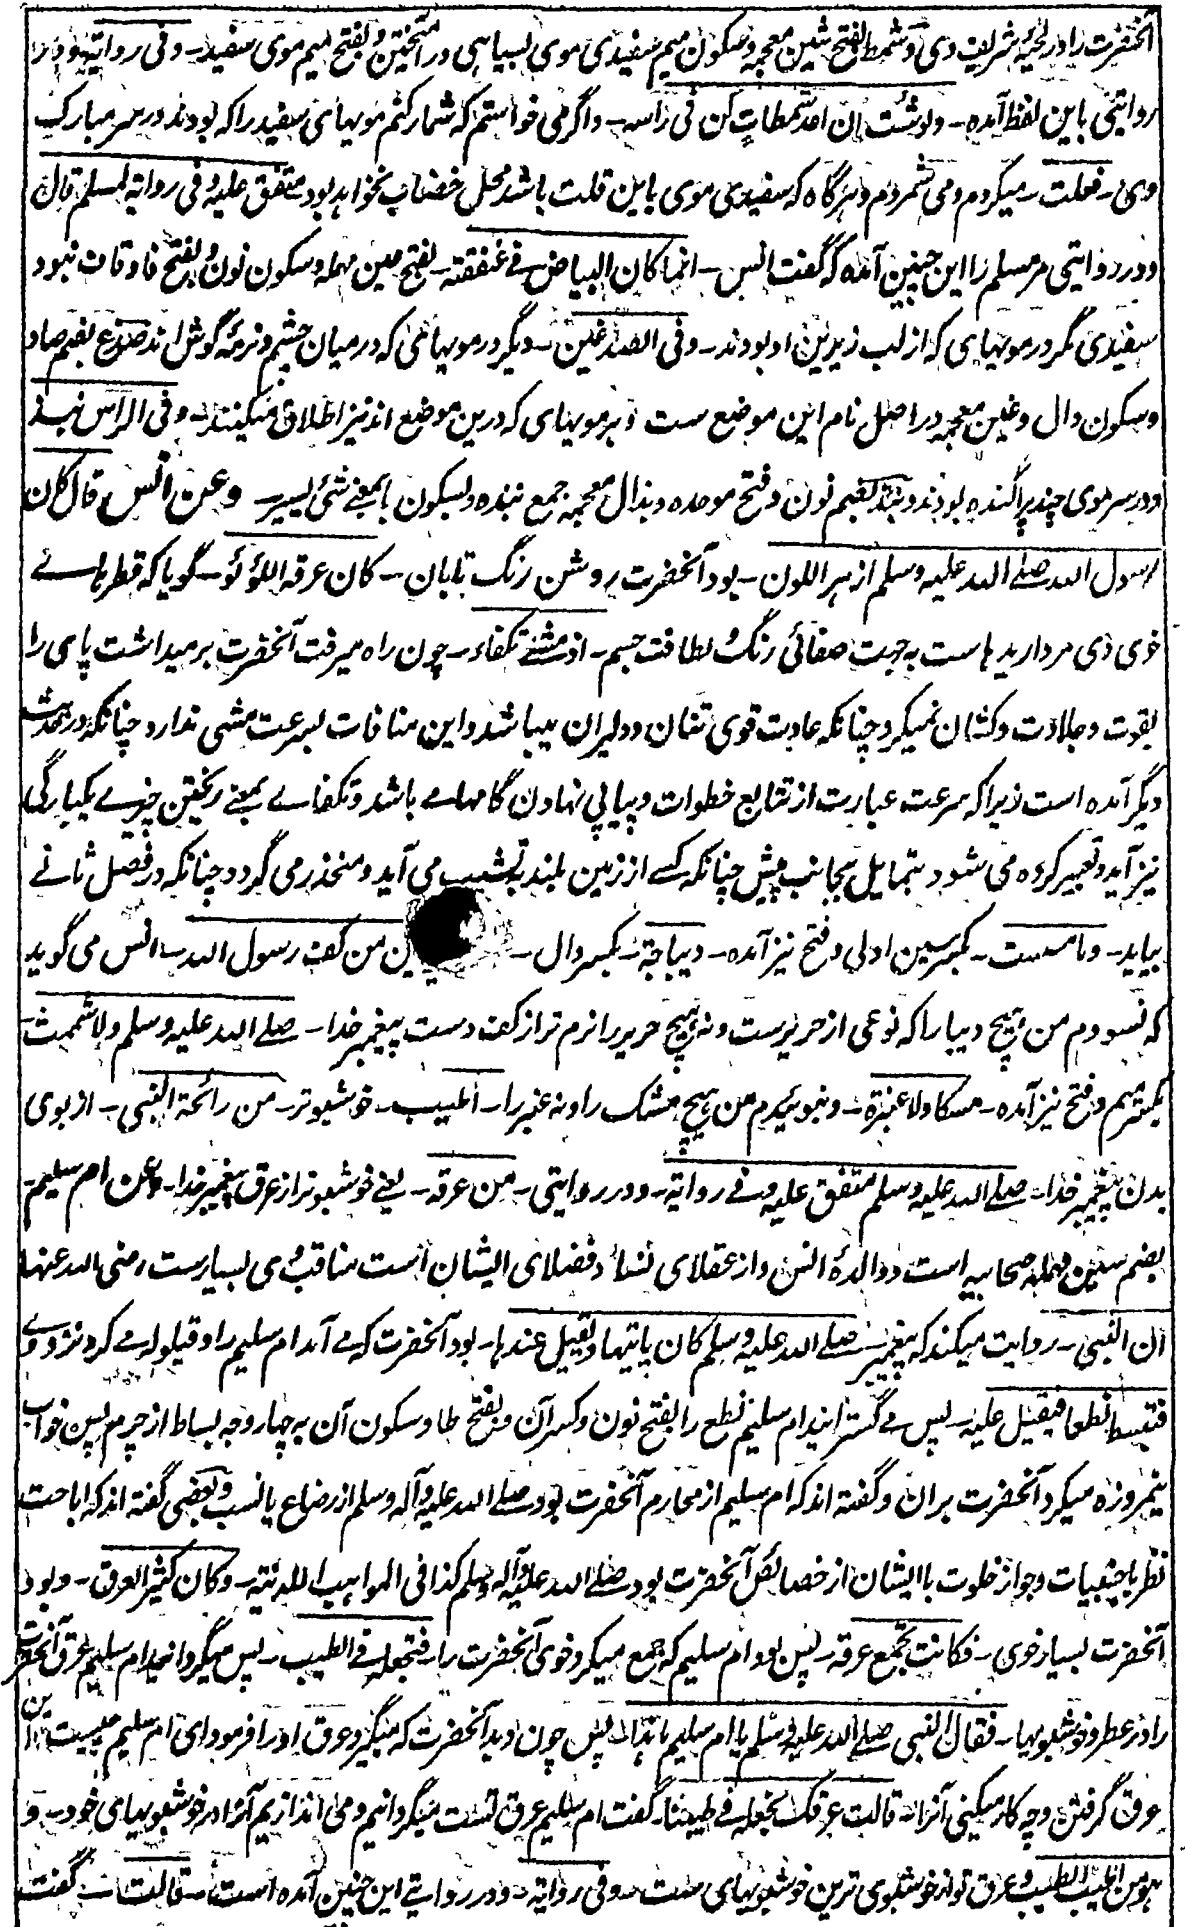 آنحضرت را در لحیهٔ شریف وی و شمط بفتح شین معجمه و سکون میم سفیدی موی بسیاهی در آمیختن و بفتح میم موی سفید ـ وفی روایة و در
روایتی باین لفظ آمده ـ ولو شئت ان اعد شمطات کن فی راسه ـ و اگر می خواستم که شمار کنم مویهای سفید را که بودند در سر مبارک
وی ـ فعلت ـ میکردم و می شمردم و هرگاه که سفیدی موی باین قلت باشد محل خضاب نخواهد بود متفق علیه وفی روایة لمسلم قال
و در روایتی مر مسلم را این چنین آمده که گفت انس ـ انما کان البیاض فے عنفقته ـ بفتح عین مهمله و سکون نون و بفتح فا و قاف نبود
سفیدی مگر در مویهای که از لب زیرین او بودند ـ وفی الصدغین ـ دیگر در مویهائی که درمیان چشم و نرمهٔ گوش اند صدغ بضم صاد
و سکون دال و غین معجمه در اصل نام این موضع ست و بر مویهای که درین موضع اند نیز اطلاق میکنند ـ وفی الراس نبذ
و در سر موی چند پراگنده بودند و نبذ بضم نون و فتح موحده و بذال معجمه جمع نبذه و بسکون با بمعنے شئ یسیر ـ وعن انس قال کان
رسول الله صلے الله علیه وسلم ازهر اللون ـ بود آنحضرت روشن رنگ تابان ـ کان عرقه اللؤلؤ ـ گویا که قطرهاے
خوی وی مرواریدهاست به جهت صفائی رنگ و لطافت جسم ـ اذا مشی تکفاء ـ چون راه میرفت آنحضرت برمیداشت پای را
بقوت و جلادت و کشان نمیکرد چنانکه عادت قوی تنان و دلیران میباشد و این منافات بسرعت مشی ندارد چنانکه در حدیث
دیگر آمده است زیراکه سرعت عبارت از تتابع خطوات و پیاپی نهادن گامهاے باشد و تکفاے بمعنے ریختن چیزے یکبارگی
نیز آید و تعبیر کرده می شود بتمایل بجانب پیش چنانکه کسے از زمین بلند بنشیب می آید و منحدر می گردد چنانکه در فصل ثانے
بیاید ـ وما مسست ـ بکسر سین اولی و فتح نیز آمده ـ دیباجة ـ بکسر دال ـ من کف رسول الله ـ انس می گوید
که نسودم من هیچ دیبا را که نوعی از حریرست و نه هیچ حریر را نرم تر از کف دست پیغمبر خدا ـ صلے الله علیه وسلم ولا شممت
بکسر میم و فتح نیز آمده ـ مسکا ولا عنبرة ـ و نبوئیدم من هیچ مشک را و نه عنبر را ـ اطیب ـ خوشبوتر ـ من رائحة النبی ـ از بوی
بدن پیغمبر خدا ـ صلے الله علیه وسلم متفق علیه وفے روایة ـ و در روایتی ـ من عرقه ـ یعنے خوشبوتر از عرق پیغمبر خدا ـ وعن ام سلیم
بضم سین مهمله صحابیه است و والدهٔ انس و از عقلای نساء و فضلای ایشان است مناقب وی بسیارست رضی الله عنها
ان النبی ـ روایت میکند که پیغمبر ـ صلے الله علیه وسلم کان یاتیها و یقیل عندها ـ بود آنحضرت که مے آمد ام سلیم را و قیلوله مے کرد نزد وے
فتبسط نطعا فیقیل علیه ـ پس مے گسترانید ام سلیم نطع را بفتح نون و کسر آن و بفتح طا و سکون آن به چهار وجه بساط از چرم پس خواب
نیمروزه میکرد آنحضرت بران و گفته اند که ام سلیم از محارم آنحضرت بود صلے الله علیه وآله وسلم از رضاع یا نسب و بعضی گفته اند که اباحت
نظر باجنبیات و جواز خلوت باایشان از خصائص آنحضرت بود صلے الله علیه وآله وسلم کذا فی المواهب اللدنیه ـ وکان کثیر العرق ـ و بود
آنحضرت بسیار خوی ـ فکانت تجمع عرقه ـ پس بود ام سلیم که جمع میکرد خوی آنحضرت را ـ فتجعله فے الطیب ـ پس میگردانید ام سلیم عرق آنحضرت
را در عطر و خوشبویها ـ فقال النبی صلے الله علیه وسلم یا ام سلیم ما هذا ـ پس چون دید آنحضرت که میگیرد عرق او را فرمود ای ام سلیم چیست این
عرق گرفتن و چه کار میکنی آنرا ـ قالت عرقک نجعله فے طیبنا ـ گفت ام سلیم عرق تست میگردانیم و می اندازیم آنرا در خوشبویهای خود ـ و
هو من اطیب الطیب و عرق تو از خوشبوی ترین خوشبویهای ست ـ وفی روایة ـ و در روایتے این چنین آمده است ـ قالت ـ گفت